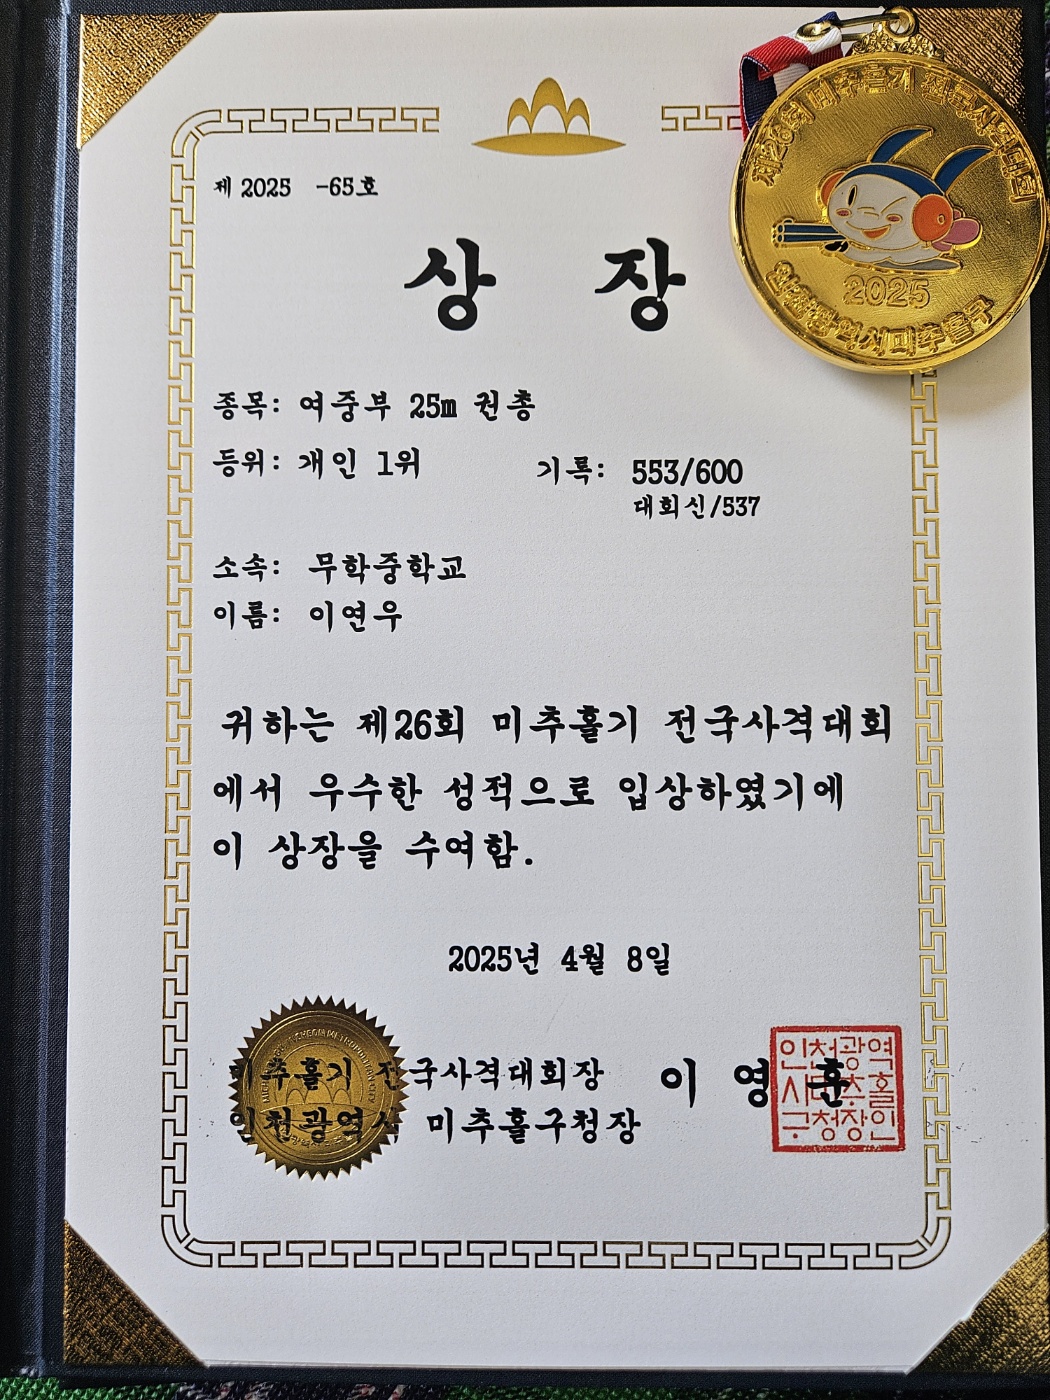 제26회 미추홀기 전국사격대회
2025
인천광역시미추홀구
제 2025 -65호
상 장
종목: 여중부 25m 권총
등위: 개인 1위 기록: 553/600
대회신/537
소속: 무학중학교
이름: 이연우
귀하는 제26회 미추홀기 전국사격대회
에서 우수한 성적으로 입상하였기에
이 상장을 수여함.
2025년 4월 8일
미추홀기 전국사격대회장 이 영 훈
인천광역시 미추홀구청장
인천광역
시미추홀
구청장인